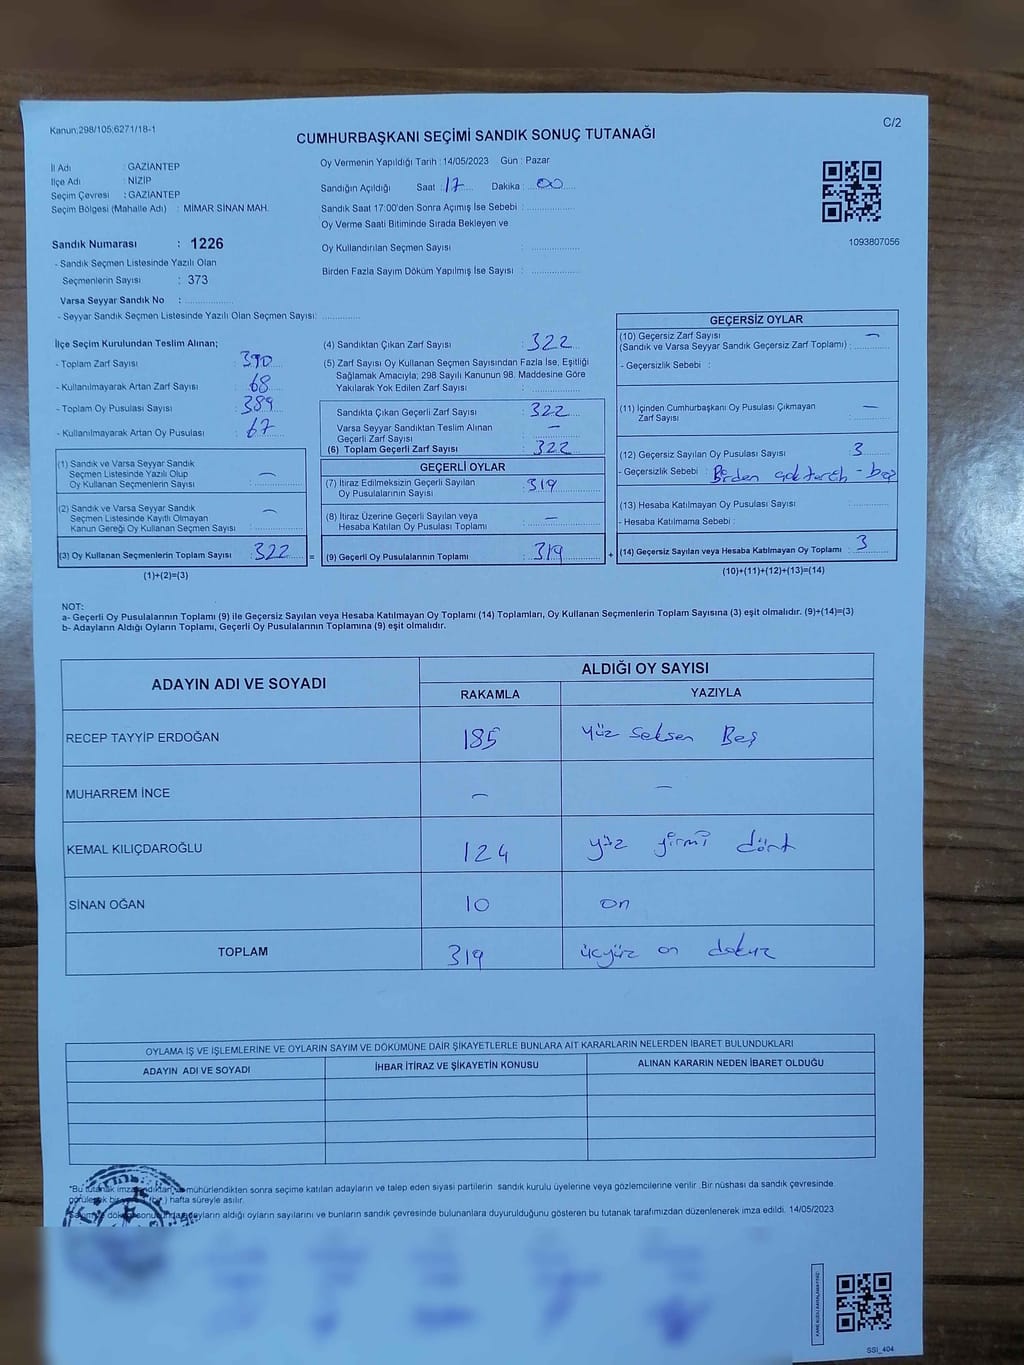 Kanun;298/105;6271/18-1
C/2
CUMHURBAŞKANI SEÇİMİ SANDIK SONUÇ TUTANAĞI
İl Adı : GAZİANTEP
İlçe Adı : NİZİP
Seçim Çevresi : GAZİANTEP
Seçim Bölgesi (Mahalle Adı) : MİMAR SİNAN MAH.
Sandık Numarası : 1226
- Sandık Seçmen Listesinde Yazılı Olan
Seçmenlerin Sayısı : 373
Varsa Seyyar Sandık No :
- Seyyar Sandık Seçmen Listesinde Yazılı Olan Seçmen Sayısı:
Oy Vermenin Yapıldığı Tarih : 14/05/2023 Gün : Pazar
Sandığın Açıldığı Saat : 17 Dakika : 00
Sandık Saat 17:00'den Sonra Açımış İse Sebebi :
Oy Verme Saati Bitiminde Sırada Bekleyen ve
Oy Kullandırılan Seçmen Sayısı :
Birden Fazla Sayım Döküm Yapılmış İse Sayısı :
1093807056
İlçe Seçim Kurulundan Teslim Alınan;
- Toplam Zarf Sayısı : 390
- Kullanılmayarak Artan Zarf Sayısı : 68
- Toplam Oy Pusulası Sayısı : 389
- Kullanılmayarak Artan Oy Pusulası : 67
(1) Sandık ve Varsa Seyyar Sandık
Seçmen Listesinde Yazılı Olup
Oy Kullanan Seçmenlerin Sayısı : -
(2) Sandık ve Varsa Seyyar Sandık
Seçmen Listesinde Kayıtlı Olmayan
Kanun Gereği Oy Kullanan Seçmen Sayısı : -
(3) Oy Kullanan Seçmenlerin Toplam Sayısı : 322 =
(1)+(2)=(3)
(4) Sandıktan Çıkan Zarf Sayısı : 322
(5) Zarf Sayısı Oy Kullanan Seçmen Sayısından Fazla İse, Eşitliği
Sağlamak Amacıyla; 298 Sayılı Kanunun 98. Maddesine Göre
Yakılarak Yok Edilen Zarf Sayısı :
Sandıkta Çıkan Geçerli Zarf Sayısı : 322
Varsa Seyyar Sandıktan Teslim Alınan
Geçerli Zarf Sayısı : -
(6) Toplam Geçerli Zarf Sayısı : 322
GEÇERLİ OYLAR
(7) İtiraz Edilmeksizin Geçerli Sayılan
Oy Pusulalarının Sayısı : 319
(8) İtiraz Üzerine Geçerli Sayılan veya
Hesaba Katılan Oy Pusulası Toplamı : -
(9) Geçerli Oy Pusulalarının Toplamı : 319 +
GEÇERSİZ OYLAR
(10) Geçersiz Zarf Sayısı
(Sandık ve Varsa Seyyar Sandık Geçersiz Zarf Toplamı) : -
- Geçersizlik Sebebi :
(11) İçinden Cumhurbaşkanı Oy Pusulası Çıkmayan
Zarf Sayısı : -
(12) Geçersiz Sayılan Oy Pusulası Sayısı : 3
- Geçersizlik Sebebi : Birden
(13) Hesaba Katılmayan Oy Pusulası Sayısı :
- Hesaba Katılmama Sebebi :
(14) Geçersiz Sayılan veya Hesaba Katılmayan Oy Toplamı : 3
(10)+(11)+(12)+(13)=(14)
NOT:
a- Geçerli Oy Pusulalarının Toplamı (9) ile Geçersiz Sayılan veya Hesaba Katılmayan Oy Toplamı (14) Toplamları, Oy Kullanan Seçmenlerin Toplam Sayısına (3) eşit olmalıdır. (9)+(14)=(3)
b- Adayların Aldığı Oyların Toplamı, Geçerli Oy Pusulalarının Toplamına (9) eşit olmalıdır.
ADAYIN ADI VE SOYADI
ALDIĞI OY SAYISI
RAKAMLA YAZIYLA
RECEP TAYYİP ERDOĞAN 185 yüz seksen Beş
MUHARREM İNCE - -
KEMAL KILIÇDAROĞLU 124 yüz yirmi dört
SİNAN OĞAN 10 on
TOPLAM 319 üçyüz on dokuz
OYLAMA İŞ VE İŞLEMLERİNE VE OYLARIN SAYIM VE DÖKÜMÜNE DAİR ŞİKAYETLERLE BUNLARA AİT KARARLARIN NELERDEN İBARET BULUNDUKLARI
ADAYIN ADI VE SOYADI
İHBAR İTİRAZ VE ŞİKAYETİN KONUSU
ALINAN KARARIN NEDEN İBARET OLDUĞU
*Bu tutanak mühürlendikten sonra seçime katılan adayların ve talep eden siyasi partilerin sandık kurulu üyelerine veya gözlemcilerine verilir. Bir nüshası da sandık çevresinde
hafta süreyle asılır.
aldığı oyların sayılarını ve bunların sandık çevresinde bulunanlara duyurulduğunu gösteren bu tutanak tarafımızdan düzenlenerek imza edildi. 14/05/2023
SSI_404